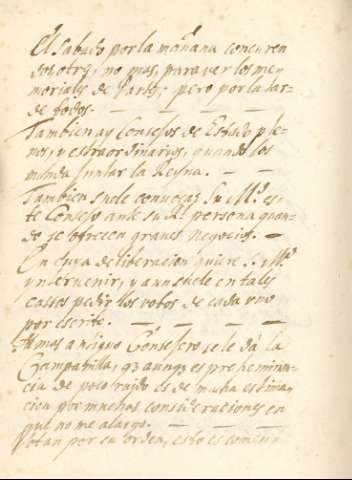 El sabado por la mañana concurren
dos otrs, no mas, para ver los me
moriales de partes; pero por la tar-
de todos.
Tambien ay Consejos de Estado ple-
nos, y extraordinarios, quando los
manda juntar la Reyna.
Tambien suele convocar Su Mg. es-
te Consejo ante su Rl. persona quan-
do se ofrecen graves negocios.
En cuya deliberacion quiere S. Mg.
yntervenir, y aun suele en tales
cassos pedir los votos de cada vno
por escrito.
Al mas antiguo Consejero se le da la
Campanilla, q aunq es preheminen-
cia de poco ruido es de mucha estima-
cion por muchas consideraciones en
que no me alargo.
Votan por su orden, esto es comen